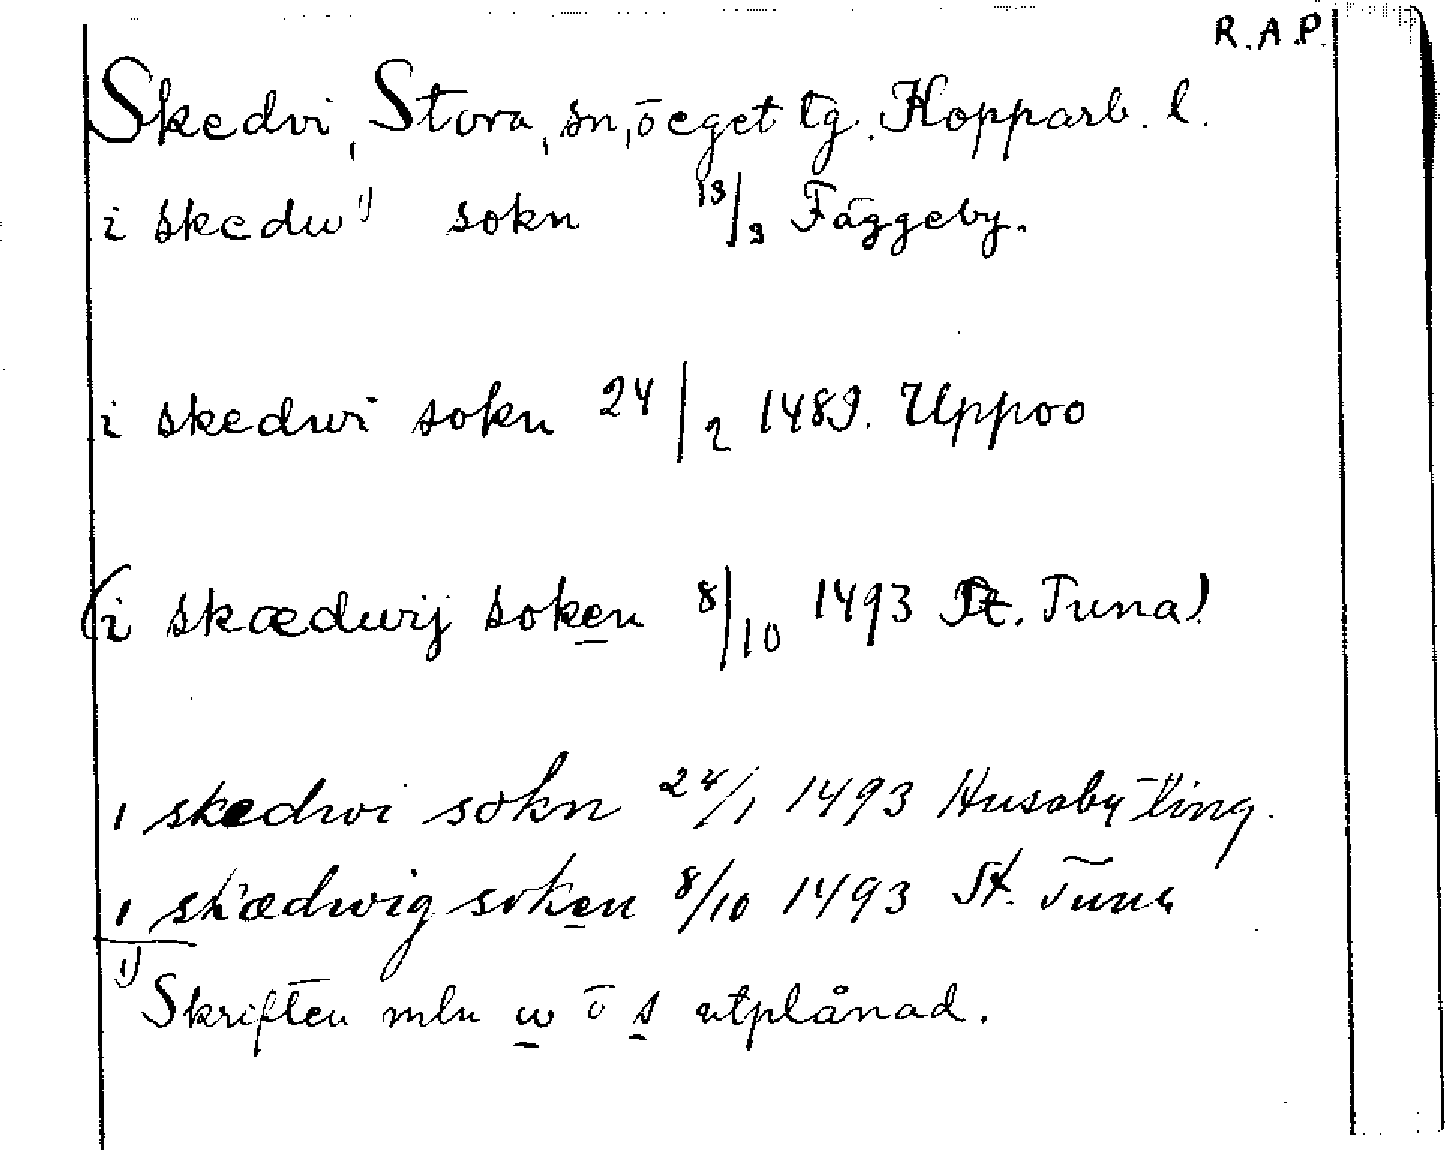 R.A.P.
Skedvi, Stora, sn, ö eget tg. Kopparb. l.
i skedw 1) sokn 13/3 Fäggeby.
i skedwi sokn 24/2 1489. Uppbo
(i skædwij soken 8/10 1493 St. Tuna)
i skedwi sokn 24/1 1493 Husaby ting.
i skædwig soken 8/10 1493 St. Tuna
1) Skriften mln w o s utplånad.